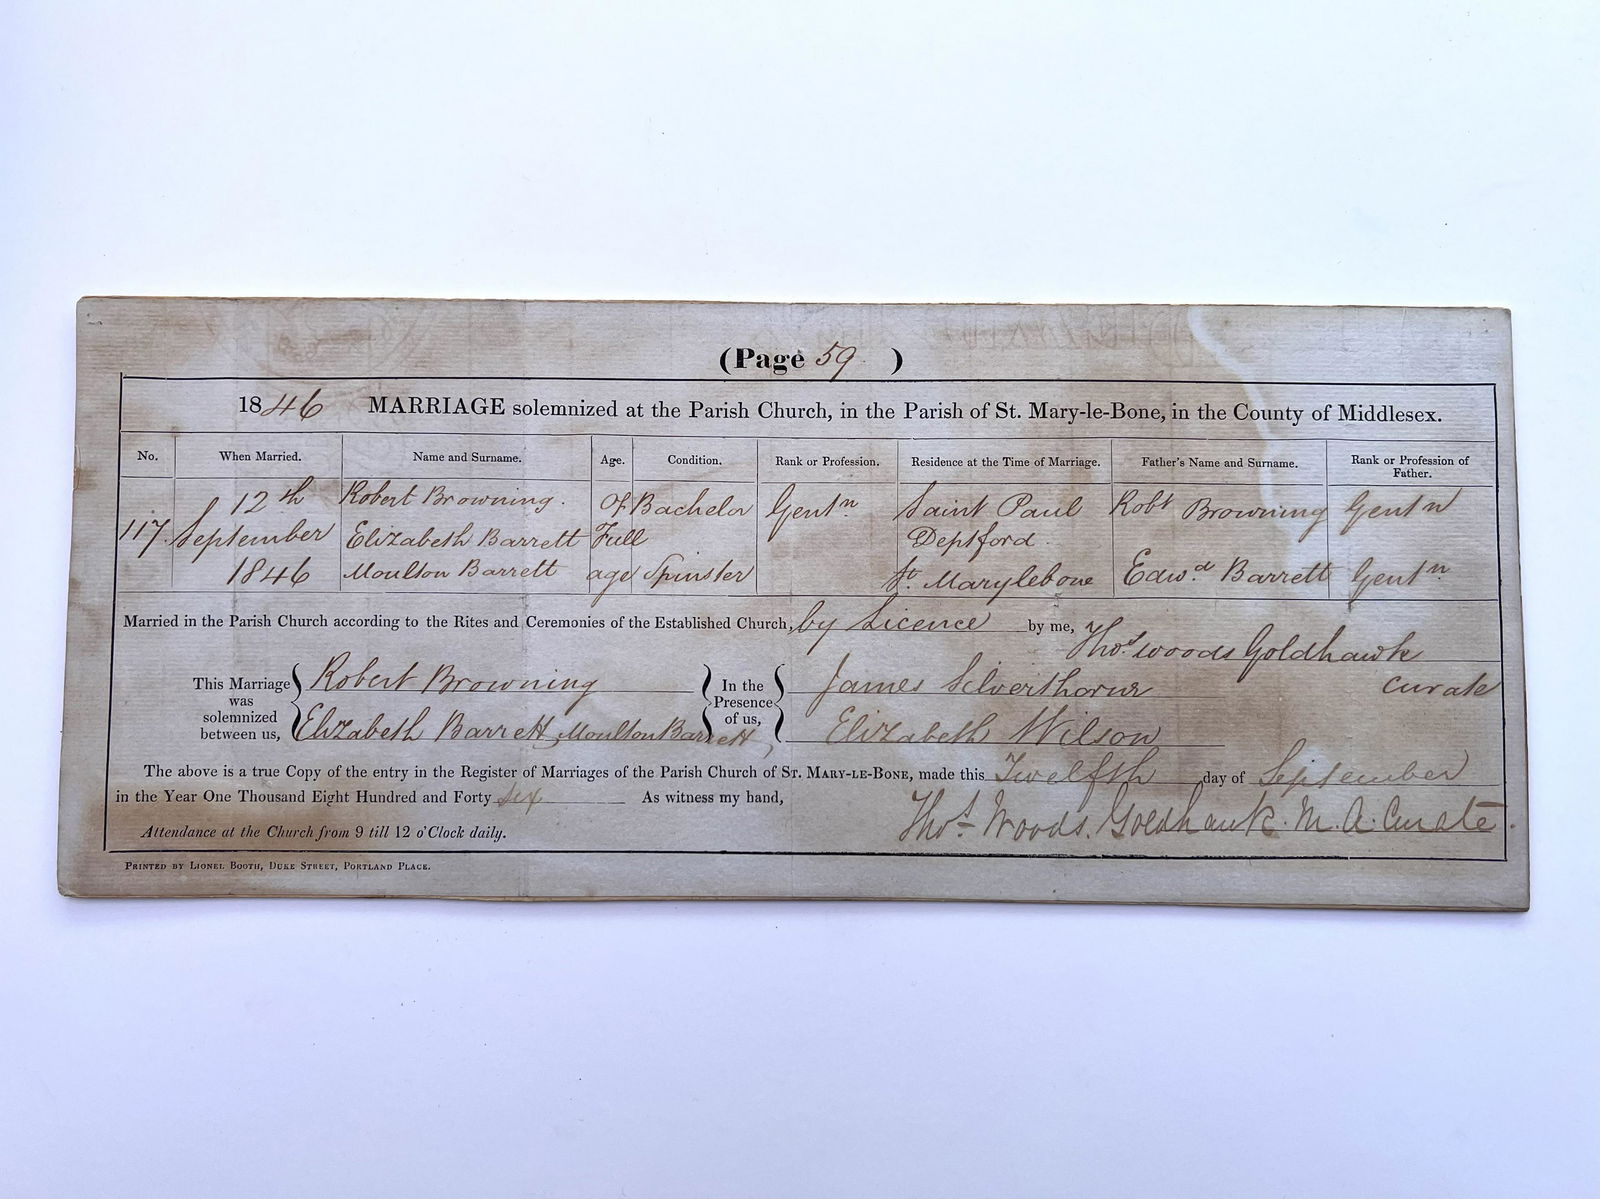 (Page 59 )
1846 MARRIAGE solemnized at the Parish Church, in the Parish of St. Mary-le-Bone, in the County of Middlesex.
No. When Married. Name and Surname. Age. Condition. Rank or Profession. Residence at the Time of Marriage. Father's Name and Surname. Rank or Profession of Father.
12th Robert Browning. Of Bachelor Gentn Saint Paul Robt Browning Gentn
117. September Elizabeth Barrett Full Deptford
1846 Moulton Barrett age Spinster St. Marylebone Edwd Barrett Gentn
Married in the Parish Church according to the Rites and Ceremonies of the Established Church, by Licence by me, Thos woods Goldhawk
curate
This Marriage was solemnized between us, Robert Browning In the Presence of us, James Silverthorne
Elizabeth Barrett Moulton Barrett, Elizabeth Wilson
The above is a true Copy of the entry in the Register of Marriages of the Parish Church of ST. MARY-LE-BONE, made this Twelfth day of September
in the Year One Thousand Eight Hundred and Forty six As witness my hand,
Thos Woods. Goldhawk. M.A. Curate.
Attendance at the Church from 9 till 12 o'Clock daily.
PRINTED BY LIONEL BOOTH, DUKE STREET, PORTLAND PLACE.